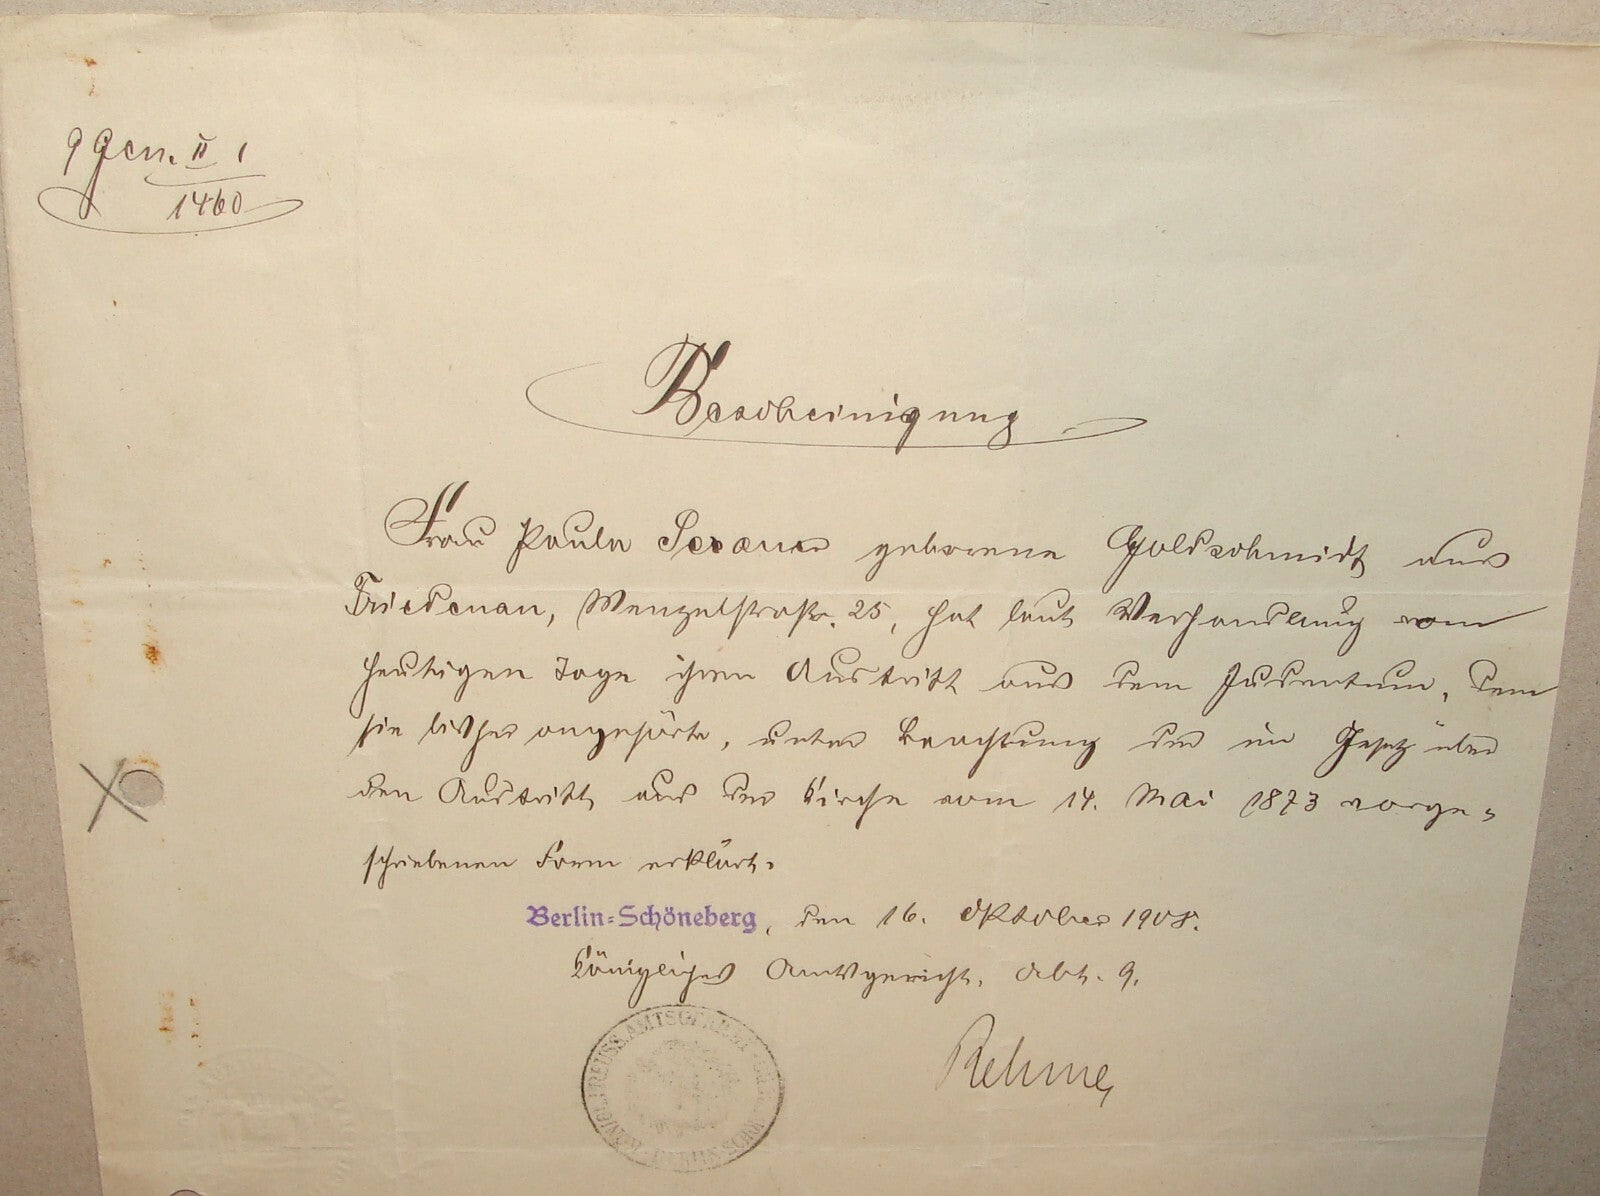 9 Gen. II 1
1460
Bescheinigung
Frau Paula geborene Goldschmidt aus
Friedenau, Menzelstraße. 25, hat laut Verhandlung vom
heutigen Tage ihren Austritt aus dem Judentum, dem
sie bisher angehörte, unter Beachtung der im Gesetz über
den Austritt aus der Kirche vom 14. Mai 1873 vorge=
schriebenen Form erklärt.
Berlin=Schöneberg, den 16. Oktober 1908.
Königliches Amtsgericht. Abt. 9.
KÖNIGL. PREUSS. AMTSGERICHT BERLIN-SCHÖNEBERG
Rehme